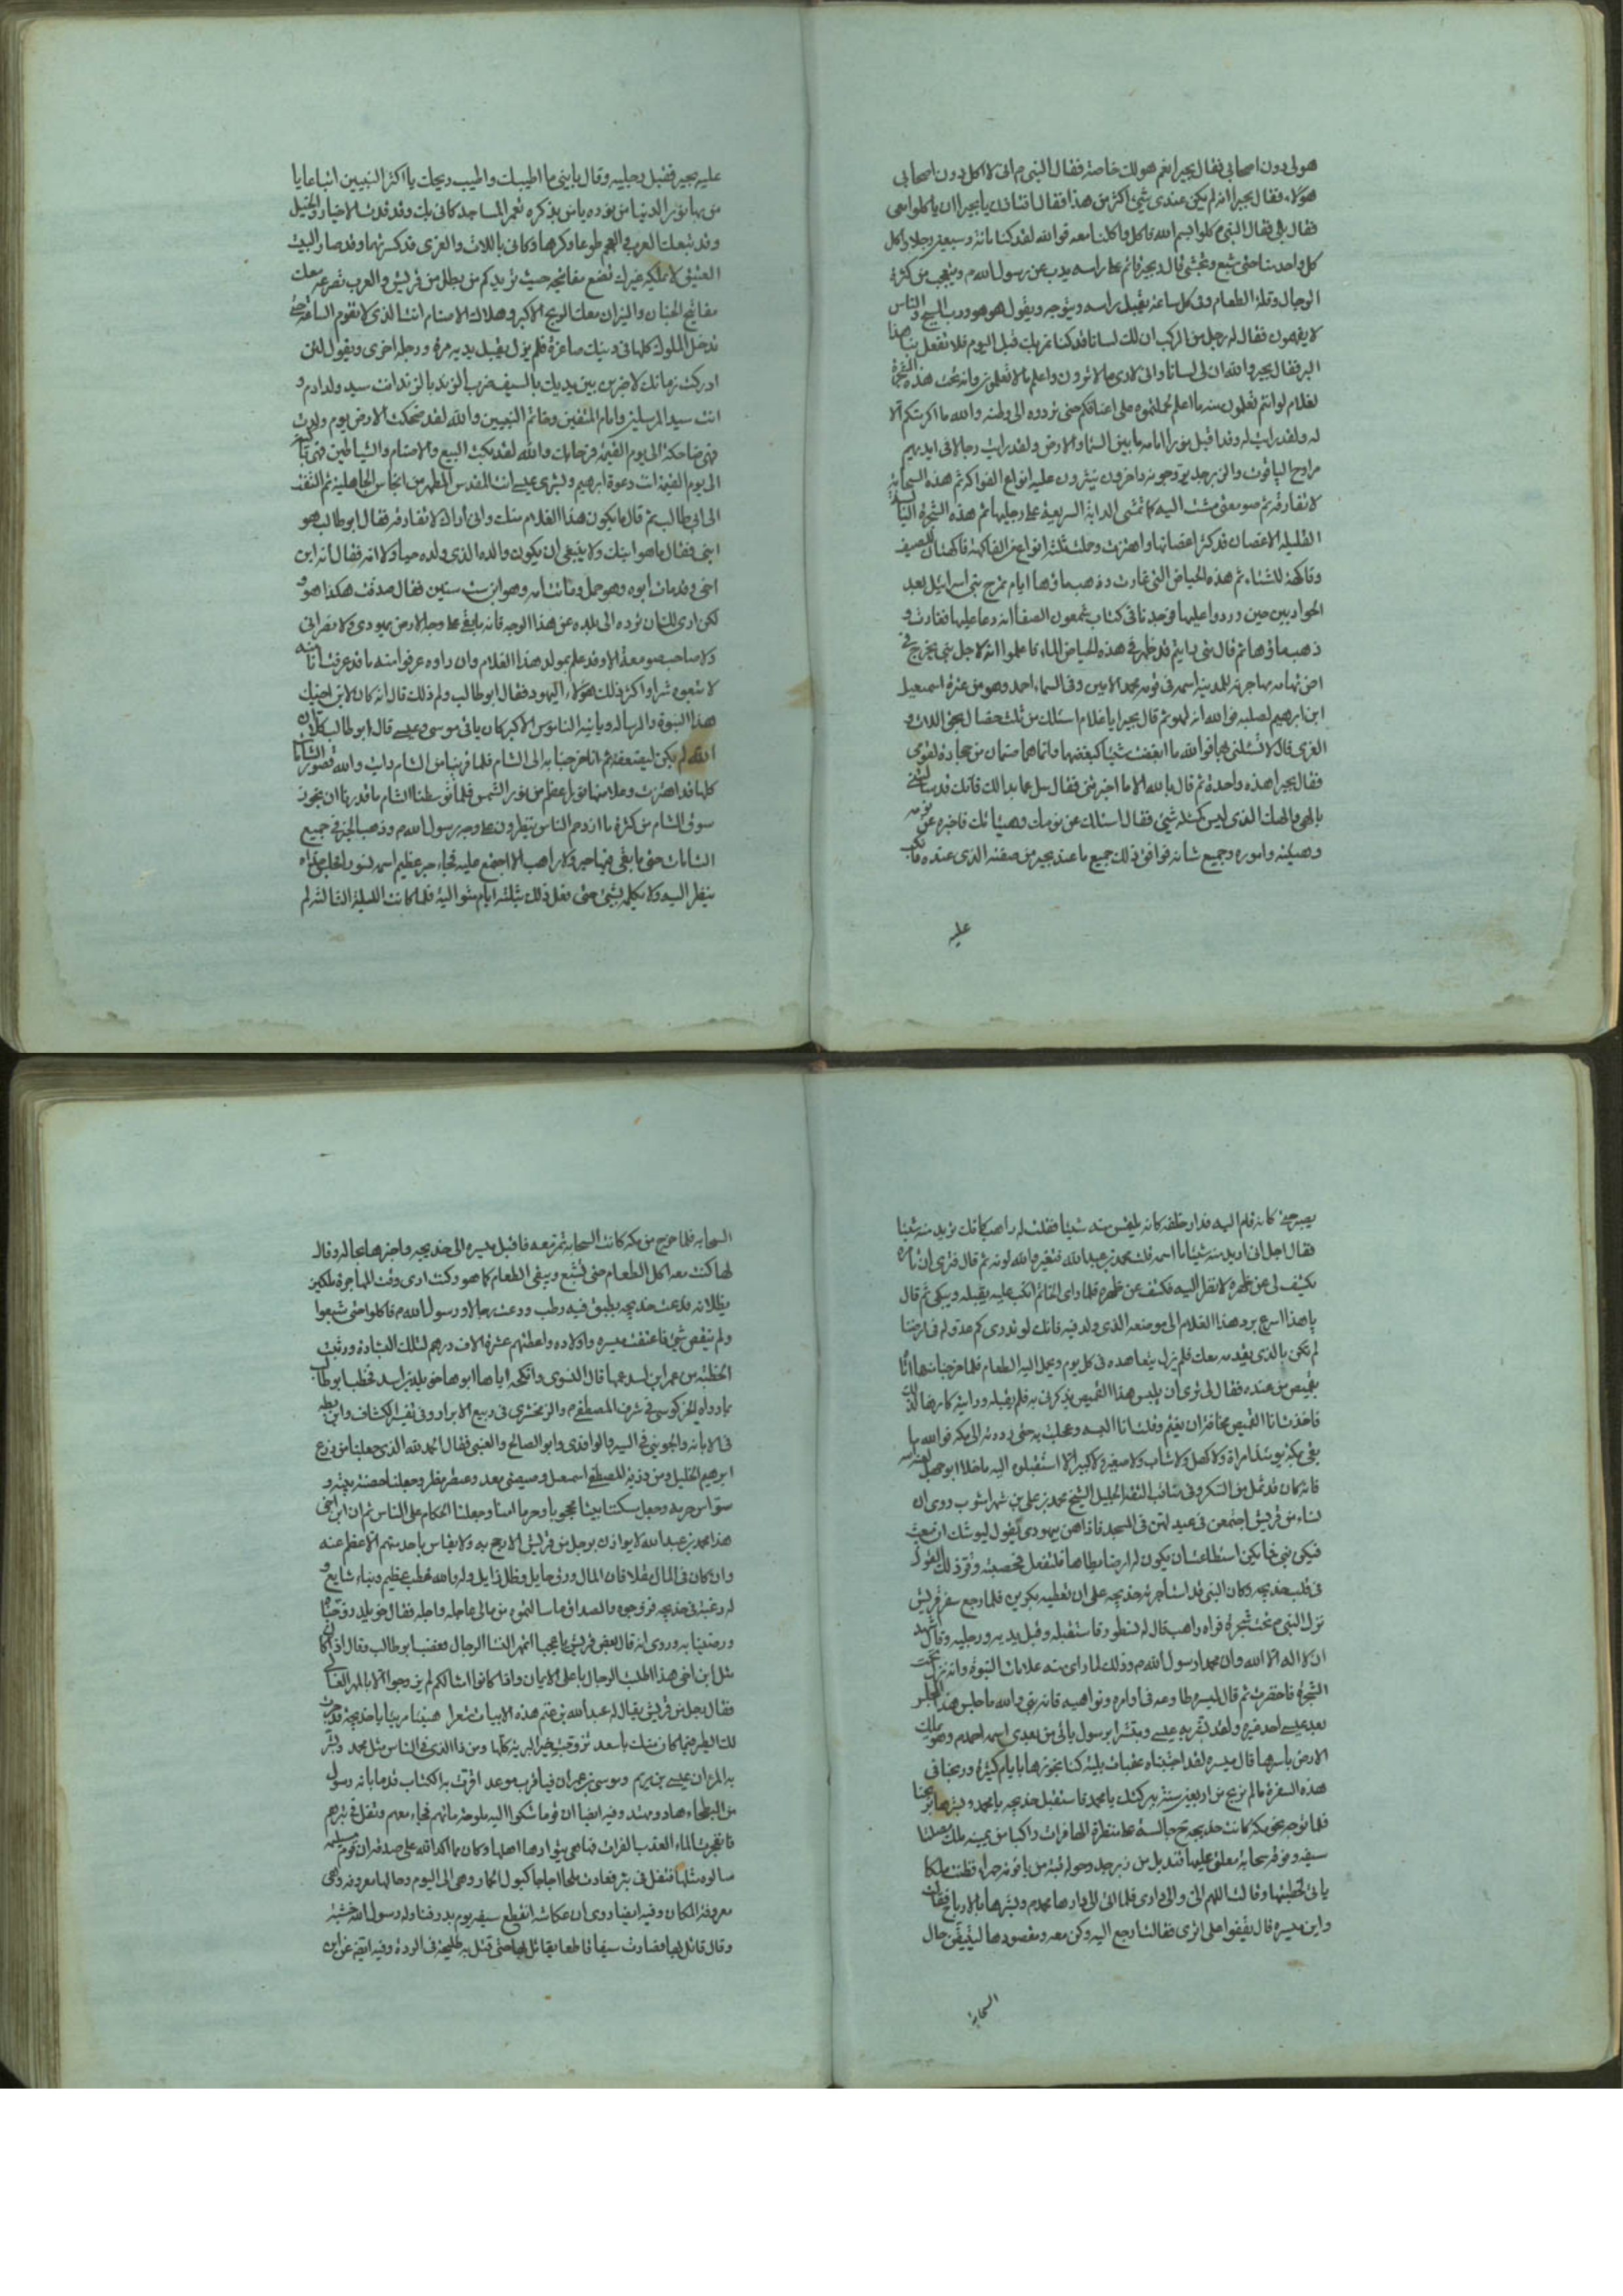 هو لي دون اصحابي فقال بحيرا نعم هو لك خاصة فقال النبي م اني لا اكل دون اصحابي
هؤلاء فقال بحيرا انه لم يكن عندي شيئ اكثر من هذا فقال افتاذن يا بحيرا ان ياكلوا معي
فقال بلى فقال النبي م كلوا بسم الله فاكل واكلنا معه فوالله لقد كنا مائة وسبعين رجلا واكل
كل واحد منا حتى شبع وتجشى قال وبحيرا قائم على راسه يذب عن رسول الله م ويتعجب من كثرة
الرجال وقلة الطعام وفي كل ساعة يقبل راسه ويتوجه ويقول هو هو ورب المسيح والناس
لا يفهمون فقال له رجل من الركب ان لك لسانا قد كنا نمر بك قبل اليوم فلا تفعل بنا هذا
البر فقال بحير والله ان لي لسانا واني لارى ما لا ترون واعلم ما لا تعلمون وانه تحت هذه الشجرة
لغلام لو انتم تعلمون منه ما اعلم لحملتموه على اعناقكم حتى تردوه الى وطنه والله ما اكرمتكم الا
له ولقد رايت له وقد اقبل نورا امامه ما بين السماء والارض ولقد رايت رجالا في ايديهم
مراوح الياقوت والزبرجد يروحونه واخرون ينثرون عليه انواع الفواكه ثم هذه السحابة
لا تفارقه ثم صومعتي مشت اليه كما تمشي الدابة السريعة على رجليها ثم هذه الشجرة اليابسة
القليلة الاغصان قد كثر اغصانها واهتزت وحملت ثلثة انواع من الفاكهة فاكهتان للصيف
وفاكهة للشتاء ثم هذه الحياض التي غارت وذهب ماؤها ايام تمرج بني اسرائيل بعد
الحواريين حين وردوا عليها فوجدنا في كتاب شمعون الصفا انه دعا عليها فغارت و
ذهب ماؤها ثم قال متى رايتم قد ظهر في هذه الحياض الماء فاعلموا انه لاجل نبي يخرج في
ارض تهامه مهاجرته المدينة اسمه في قومه محمد الامين وفي السماء احمد وهو من عترة اسمعيل
ابن ابرهيم لصلبه فوالله انه لهو ثم قال بحيرا يا غلام اسئلك عن ثلث خصال بحق اللات و
العزى قال لا تسئلني بهما فوالله ما ابغضت شيئا كبغضهما وانما هما صنمان من حجارة لقومي
فقال بحيرا هذه واحدة ثم قال بالله الا ما اخبرتني فقال سل عما بدا لك فانك قد سئلتني
بالهي والهك الذي ليس كمثله شيئ فقال اسئلك عن نومك وهيئاتك فاخبره عن نومه
وهيئته واموره وجميع شانه فوافق ذلك جميع ما عند بحير من صفته الذي عنده فانكب
عليه
عليه بحير فقبل رجليه وقال يا بني ما اطيبك واطيب ريحك يا اكثر النبيين اتباعا يا
من بهاء نور الدنيا من نوره يا من بذكره تعمر المساجد كاني بك وقد قدت الاخيار والخيل
وقد تبعك العرب والعجم طوعا وكرها وكاني باللات والعزى قد كسرتهما وقد صار البيت
العتيق لا يملكه غيرك تضع مفاتيحه حيث تريد كم من بطل من قريش والعرب تصرعه معك
مفاتيح الجنان والنيران معك الربح الاكبر وهلاك الاصنام انت الذي لا تقوم الساعة حتى
تدخل الملوك كلها في دينك صاغرة فلم يزل يقبل يديه مرة ورجله اخرى ويقول لئن
ادركت زمانك لاضربن بين يديك بالسيف ضرب الزند بالزند انت سيد ولد ادم و
انت سيد المرسلين وامام المتقين وخاتم النبيين والله لقد ضحكت الارض يوم ولدت
فهي ضاحكة الى يوم القيمة فرحا بك والله لقد بكت البيع والاصنام والشياطين فهي باكية
الى يوم القيمة انت دعوة ابرهيم وبشرى عيسى انت المقدس المطهر من انجاس الجاهلية ثم التفت
الى ابي طالب ثم قال ما يكون هذا الغلام منك واني اراك لا تفارقه فقال ابو طالب هو
ابني فقال ما هو ابنك ولا ينبغي ان يكون والده الذي ولده حيا ولا امه فقال انه ابن
اخي وقد مات ابوه وهو حمل وماتت امه وهو ابن ست سنين فقال صدقت هكذا هو و
لكن ارى لك ان ترده الى بلده عن هذا الوجه فانه ما بقي على وجه الارض يهودي ولا نصراني
ولا صاحب صومعة الا وقد علم بمولد هذا الغلام وان راوه عرفوا منه ما قد عرفت انا منه
لا تبعوه شرا واكثر ذلك هؤلاء اليهود فقال ابو طالب ولم ذلك قال انه كائن لابن اخيك
هذا النبوة والرسالة وياتيه الناموس الاكبر كان ياتي موسى وعيسى قال ابو طالب كلا ان
الله لم يكن ليضيعه ثم انا خرجنا به الى الشام فلما قربنا من الشام رايت والله قصور الشامات
كلها قد اهتزت وعلا منها نور اعظم من نور الشمس فلما توسطنا الشام ما قدرنا ان نجوز
سوق الشام من كثرة ما ازدحم الناس ينظرون على وجه رسول الله م وذهب الخبر في جميع
الشامات حتى ما بقي فيها حبر ولا راهب الا اجتمع عليه فجاء حبر عظيم اسمه نسطور فجلس حذاه
ينظر اليه ولا يكلمه بشئ حتى فعل ذلك ثلثة ايام متوالية فلما كانت الليلة الثالثة لم
يصبر حتى قام اليه فدار خلفه كانه يلتمس منه شيئا فقلت له يا راهب كانك تريد منه شيئا
فقال اجل اني اريد منه شيئا ما اسمه قلت محمد بن عبد الله فتغير والله لونه ثم قال فترى ان تامره
يكشف لي عن ظهره لانظر اليه فكشف عن ظهره فلما راى الخاتم انكب عليه يقبله ويبكي ثم قال
يا هذا اسرع برد هذا الغلام الى موضعه الذي ولد فيه فانك لو تدري كم عدو له في ارضنا
لم تكن بالذي تقدمه معك فلم يزل يتعاهده في كل يوم ويحمل اليه الطعام فلما خرجنا منها اتا
بقميص من عنده فقال لي ترى ان يلبس هذا القميص يذكرني به فلم يقبله ورايته كارها لذلك
فاخذت انا القميص مخافة ان يغتم وقلت انا البسه وعجلت به حتى رددته الى مكة فوالله ما
بقي بمكة يومئذ امراة ولا كهل ولا شاب ولا صغير ولا كبير الا استقبلوه اليه ما خلا ابو جهل لعنه الله
فانه كان قد ثمل من السكر وفي مناقب الثقة الجليل الشيخ محمد بن علي بن شهراشوب روى ان
نساء من قريش اجتمعن في عيد لهن في المسجد فاذا هن بيهودي يقول ليوشك ان يبعث
فيكن نبي فايكن استطاعت ان يكون له ارضا يطاها فلتفعل فحصبنه وقر ذلك القول
في قلب خديجه وكان النبي قد استاجرته خديجه على ان تعطيه بكرين فلما رجع سفر قريش
نزل النبي م تحت شجرة فراه راهب قال له نسطور فاستقبله وقبل يديه ورجليه وقال اشهد
ان لا اله الا الله وان محمدا رسول الله م وذلك لما راى منه علامات النبوة وانه نزل تحت
الشجرة فاخضرت ثم قال لميسرة طاوعه في اوامره ونواهيه فانه نبي والله ما جلس هذا المجلس
بعد عيسى احد غيره ولقد بشر به عيسى ومبشرا برسول ياتي من بعدي اسمه احمد م وهو يملك
الارض باسرها قال ميسره لقد احتبناه عقبات بليلة كنا نجوزها بايام كثيرة وربحنا في
هذه السفرة ما لم نربح من اربعين سنة ببركتك يا محمد فاستقبل خديجه يا محمد وبشرها بربحنا
فلما توجه نحو مكة كانت خديجه ح جالسة على منظرة لها فرات راكبا من يمينه ملك مصلتا
سيفه وفوقه سحابة معلق عليها قنديل من زبرجد وحوله قبة من ياقوته حمراء فظنت ملكا
ياتي لخطبتها وقالت اللهم الي والى داري فلما اتى الى دارها محمد م وبشرها بالارباح فقالت
واين ميسره قال يقفو على اثري فقالت ارجع اليه وكن معه ومقصودها ليتيقن حال
السحابة
السحابة فلما خرج من مكة كانت السحابة تمر معه فاقبل ميسره الى خديجه واخبرها بحاله وقال
لها كنت معه اكل الطعام حتى نشبع ويبقى الطعام كما هو وكنت ارى وقت الهاجرة ملكين
يظلانه فدعت خديجه بطبق فيه رطب ودعت رجالا ورسول الله م فاكلوا حتى شبعوا
ولم ينقص شئ فاعتقت ميسره واولاده واعطتهم عشرة الاف درهم لتلك البشارة ورتبت
الخطبة من عمر ابن اسد عمها قال النسوى وانكحه اياها ابوها خويلد بن اسد فخطب ابو طالب
بما رواه الخركوسي في شرف المصطفى م والزمخشري في ربيع الابرار وفي تفسير الكشاف وابن بطه
في الابانه والجويني في السير والواقدي وابو الصالح والعتبي فقال الحمد لله الذي جعلنا من زرع
ابرهيم الخليل ومن ذرية المصطفى اسمعيل وصيصئ معد وعنصر مضر وجعلنا حضنة بيته و
سواس حرمه وجعل مسكننا بيتا محجوبا وحرما امنا وجعلنا الحكام على الناس ثم ان ابن اخي
هذا محمد بن عبد الله لا يوازن برجل من قريش الا رجح به ولا يقاس باحد منهم الا عظم عنه
وان كان في المال مقلا فان المال ورق حايل وظل زايل وله والله خطب عظيم ونباء شايع و
له رغبة في خديجه فزوجوه والصداق ما سالتموه من مالي عاجله واجله فقال خويلد زوجناه
ورضينا به وروي انه قال بعض قريش يا عجبا ايمهر النساء الرجال فغضب ابو طالب وقال اذا كانوا
مثل ابن اخي هذا اطلبت الرجال باعلى الاثمان واذا كانوا امثالكم لم يزوجوا الا بالمهر الغالي
فقال رجل من قريش يقال له عبد الله بن غنم هذه الابيات شعرا هنيئا مريئا يا خديجة قد جرت
لك الطير فيما كان منك باسعد تزوجت خير البرية كلها ومن ذا الذي في الناس مثل محمد وبشر
به المرءان عيسى بن مريم وموسى بن عمران فيا قرب موعد اقرت به الكتاب قدما بانه رسول
من البطحاء هاد ومهتد وفيه ايضا ان قوما شكوا اليه ملوحة مائهم فجاء معهم وتفل في بئرهم
فانفجرت بالماء العذب الفرات فها هي يتوارثها اهلها وكان مما اكد الله على صدقه ان قوم مسيلمه
سالوه مثلها فتفل في بئر فعادت ملحا اجاجا كبول الحمار وهي الى اليوم وحالها معروفة واهي
معروفة المكان وفيه ايضا روى ان عكاشه انقطع سيفه يوم بدر فناوله رسول الله خشبة
وقال قاتل بها فصارت سيفا قاطعا يقاتل بها حتى قتل به طليحة في الردة وفيه ايضا عن ابن